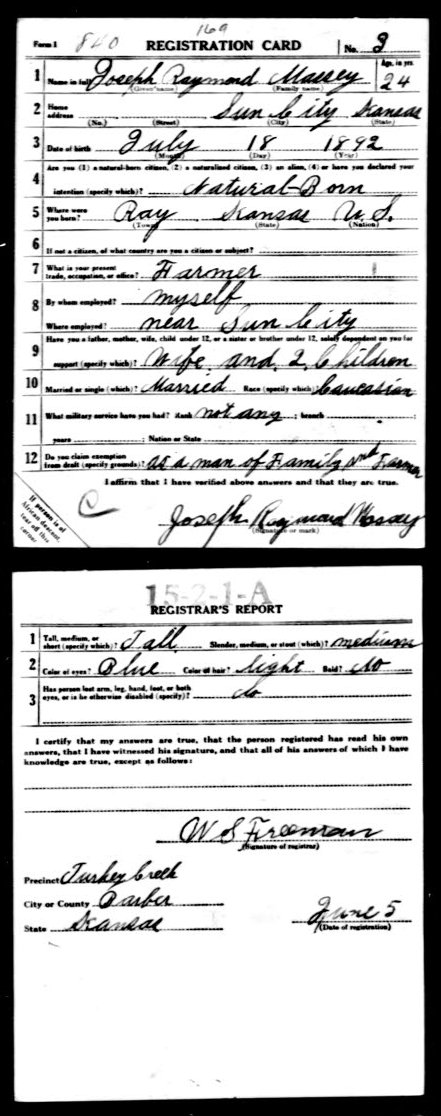 169
Form 1 840 REGISTRATION CARD No. 2
1 Name in full Joseph Raymond Massey Age, in yrs. 24
(Given name) (Family name)
2 Home address Sun City Kansas
(No.) (Street) (City) (State)
3 Date of birth July 18 1892
(Month) (Day) (Year)
4 Are you (1) a natural-born citizen, (2) a naturalized citizen, (3) an alien, (4) or have you declared your
intention (specify which)? Natural-Born
5 Where were you born? Ray Kansas U.S.
(Town) (State) (Nation)
6 If not a citizen, of what country are you a citizen or subject?
7 What is your present trade, occupation, or office? Farmer
8 By whom employed? myself
Where employed? near Sun City
9 Have you a father, mother, wife, child under 12, or a sister or brother under 12, solely dependent on you for
support (specify which)? Wife and 2 Children
10 Married or single (which)? Married Race (specify which)? Caucasian
11 What military service have you had? Rank not any ; branch ;
years ; Nation or State
12 Do you claim exemption from draft (specify grounds)? as a man of Family and Farmer
I affirm that I have verified above answers and that they are true.
If person is of African descent, tear off this corner
C
Joseph Raymond Massey
(Signature or mark)
15-2-1-A
REGISTRAR'S REPORT
1 Tall, medium, or short (specify which)? Tall Slender, medium, or stout (which)? medium
2 Color of eyes? Blue Color of hair? light Bald? No
3 Has person lost arm, leg, hand, foot, or both eyes, or is he otherwise disabled (specify)? No
I certify that my answers are true, that the person registered has read his own
answers, that I have witnessed his signature, and that all of his answers of which I have
knowledge are true, except as follows:
W S Freeman
(Signature of registrar)
Precinct Turkey Creek
City or County Barber
State Kansas June 5
(Date of registration)